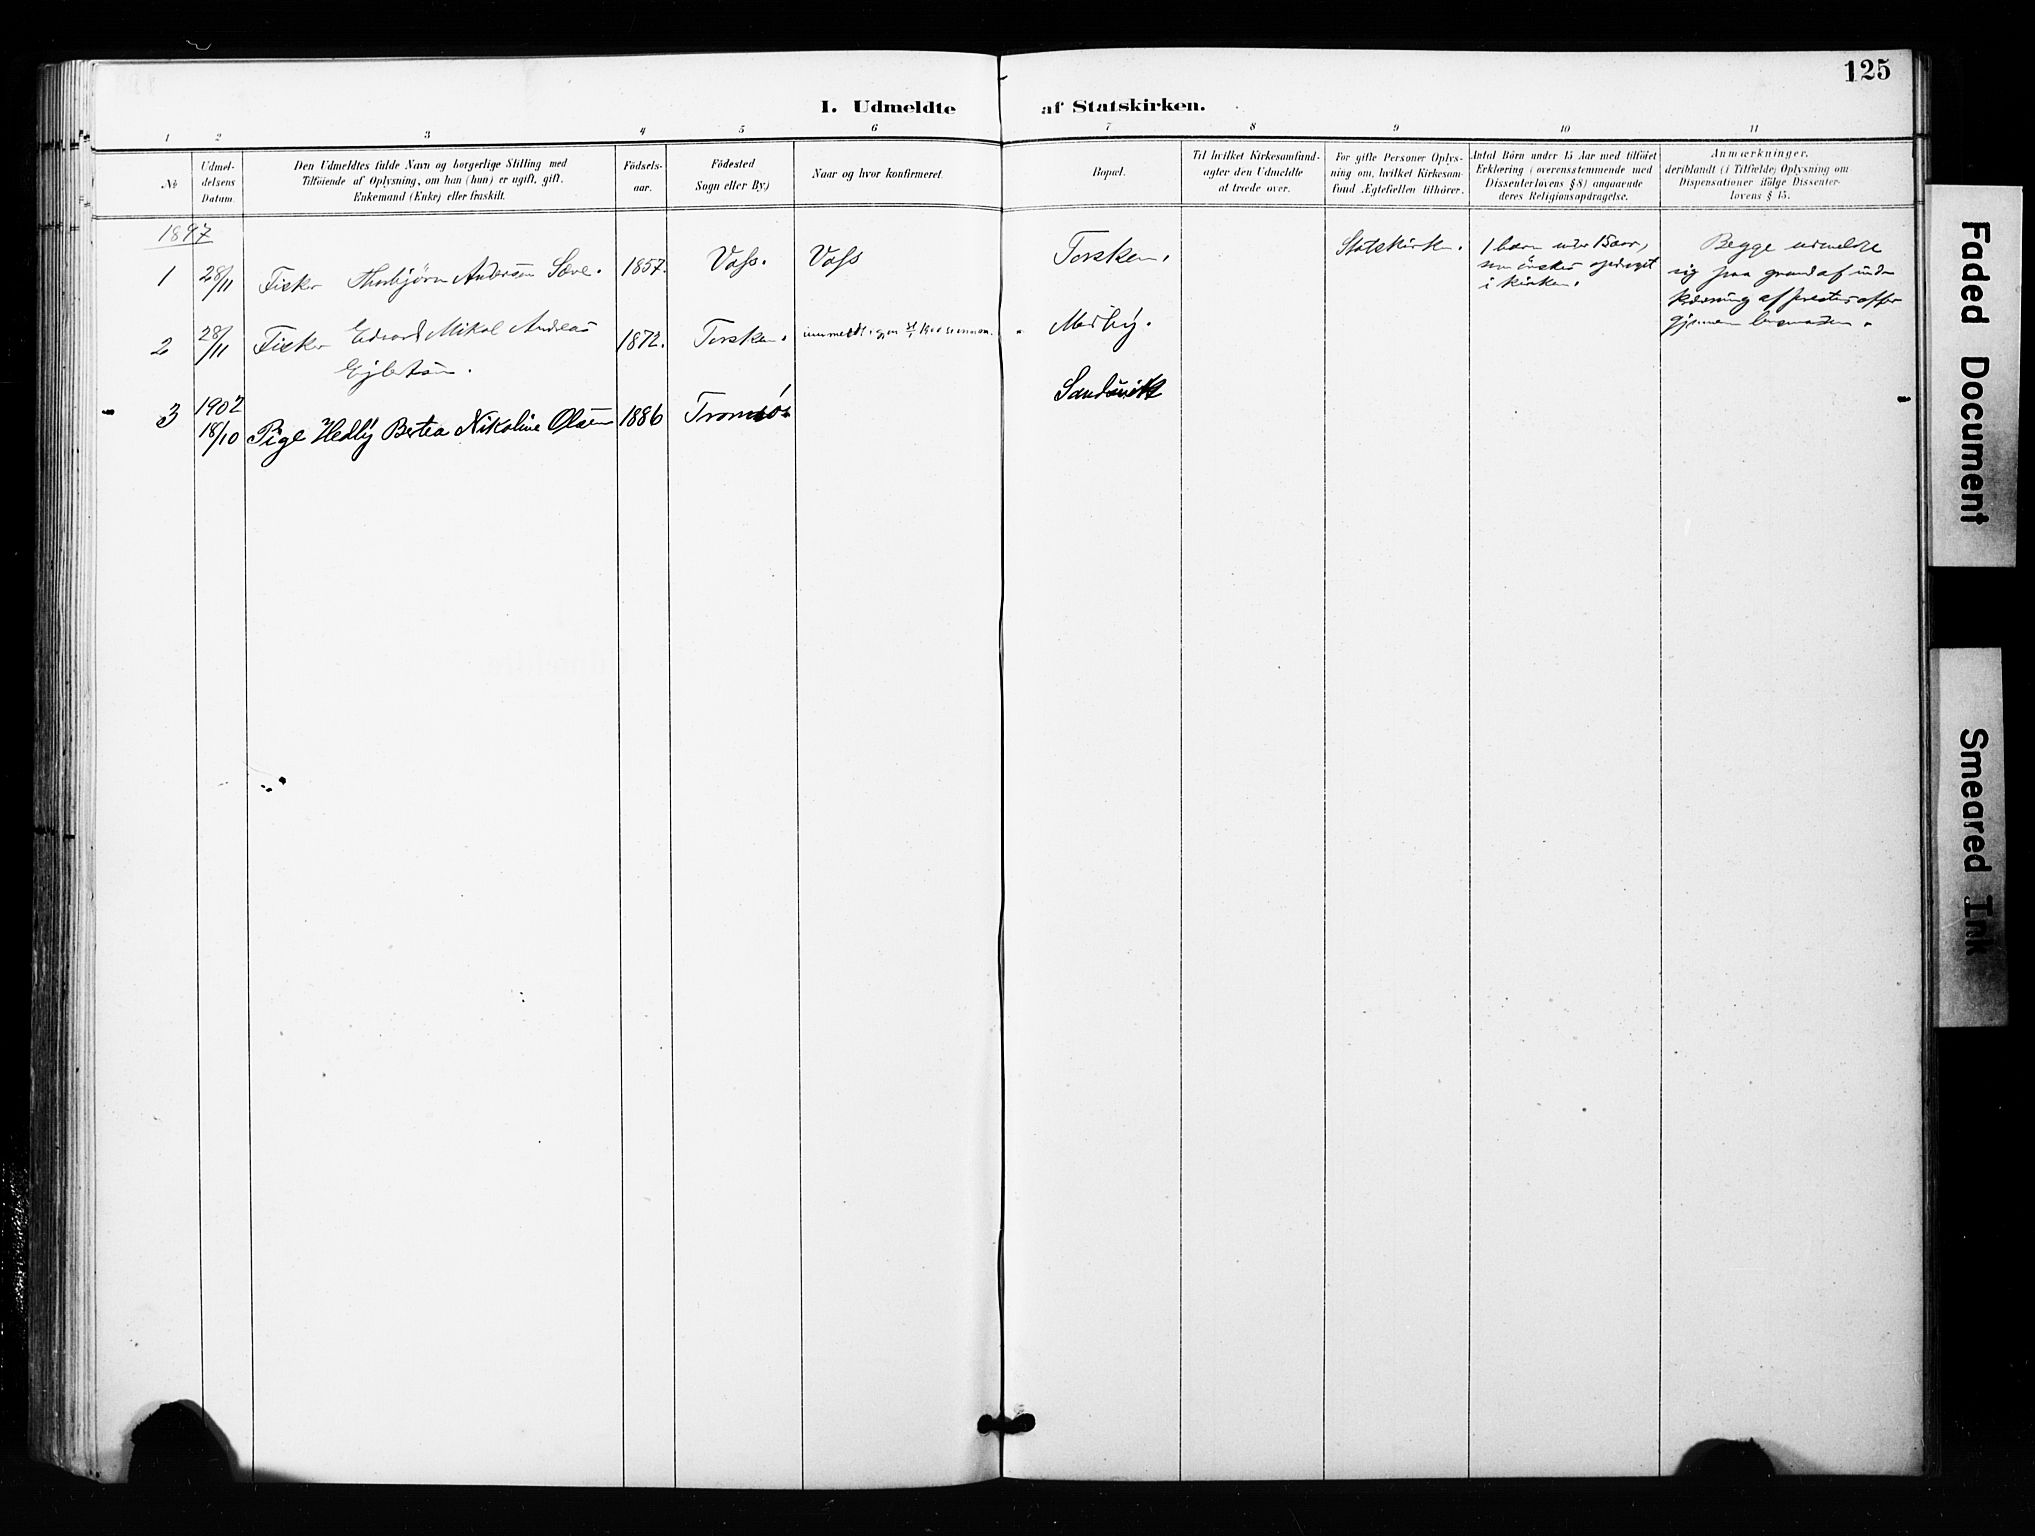 125
I. Udmeldte af Statskirken.
1 2 3 4 5 6 7 8 9 10 11
No
Udmel-
delsens
Datum.
Den Udmeldtes fulde Navn og borgerlige Stilling med
Tilföiende af Oplysning, om han (hun) er ugift, gift,
Enkemand (Enke) eller fraskilt.
Födsels-
aar.
Födested
Sogn eller By)
Naar og hvor konfirmeret.
Bopæl.
Til hvilket Kirkesamfund-
agter den Udmeldte
at træde over.
For gifte Personer Oplys-
ning om, hvilket Kirkesam-
fund Ægtefællen tilhörer.
Antal Börn under 15 Aar med tilföiet
Erklæring (overensstemmende med
Dissenterlovens § 8) angaaende
deres Religionsopdragelse.
Anmærkninger.
deriblandt (i Tilfælde) Oplysning om
Dispensationer ifölge Dissenter-
lovens § 15.
1897
1 28/11 Fisker Thorbjørn Andersen Sæve. 1857. Voss. Voss Torsken. Statskirken. 1 barn under 15 aar,
som ønskes opdraget
i kirken.
Begge udmeldte
sig paa grund af
af prestens
gjennem
2 28/11 Fisker Edvard Mikal Andreas
Ejlertsen. 1872. Torsken. igjen 1900 Medby.
3 1902
18/10 Pige Hedly Bertea Nikoline Olsen 1886 Tromsö. Sandsvik
Faded Document
Smeared Ink